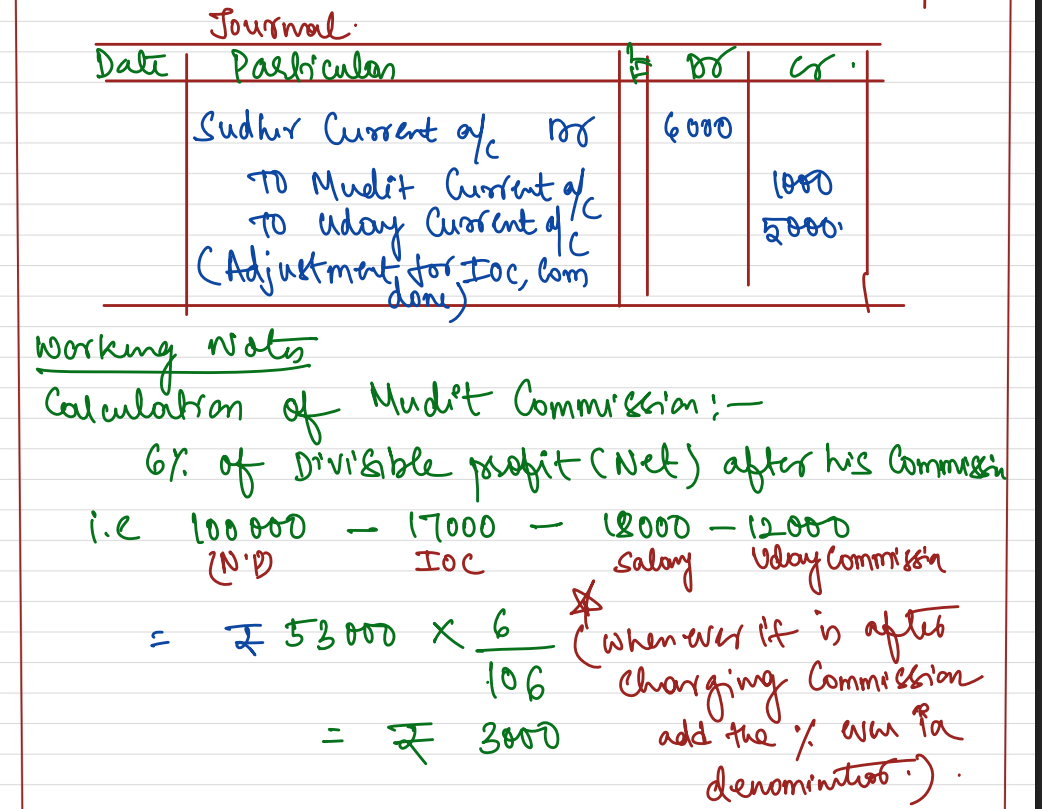 Journal.
Date Particulars LF Dr Cr.
Sudhir Current a/c Dr 6000
To Mudit Current a/c 1000
To Uday Current a/c 5000.
(Adjustment for IOC, Com
done)
Working Notes
Calculation of Mudit Commission:—
6% of Divisible profit (Net) after his Commission
i.e 100000 — 17000 — 18000 — 12000
(N.P) IOC Salary Uday Commission
= ₹ 53000 × 6/106 (whenever it is after
charging Commission
= ₹ 3000 add the % even in
denominator.).